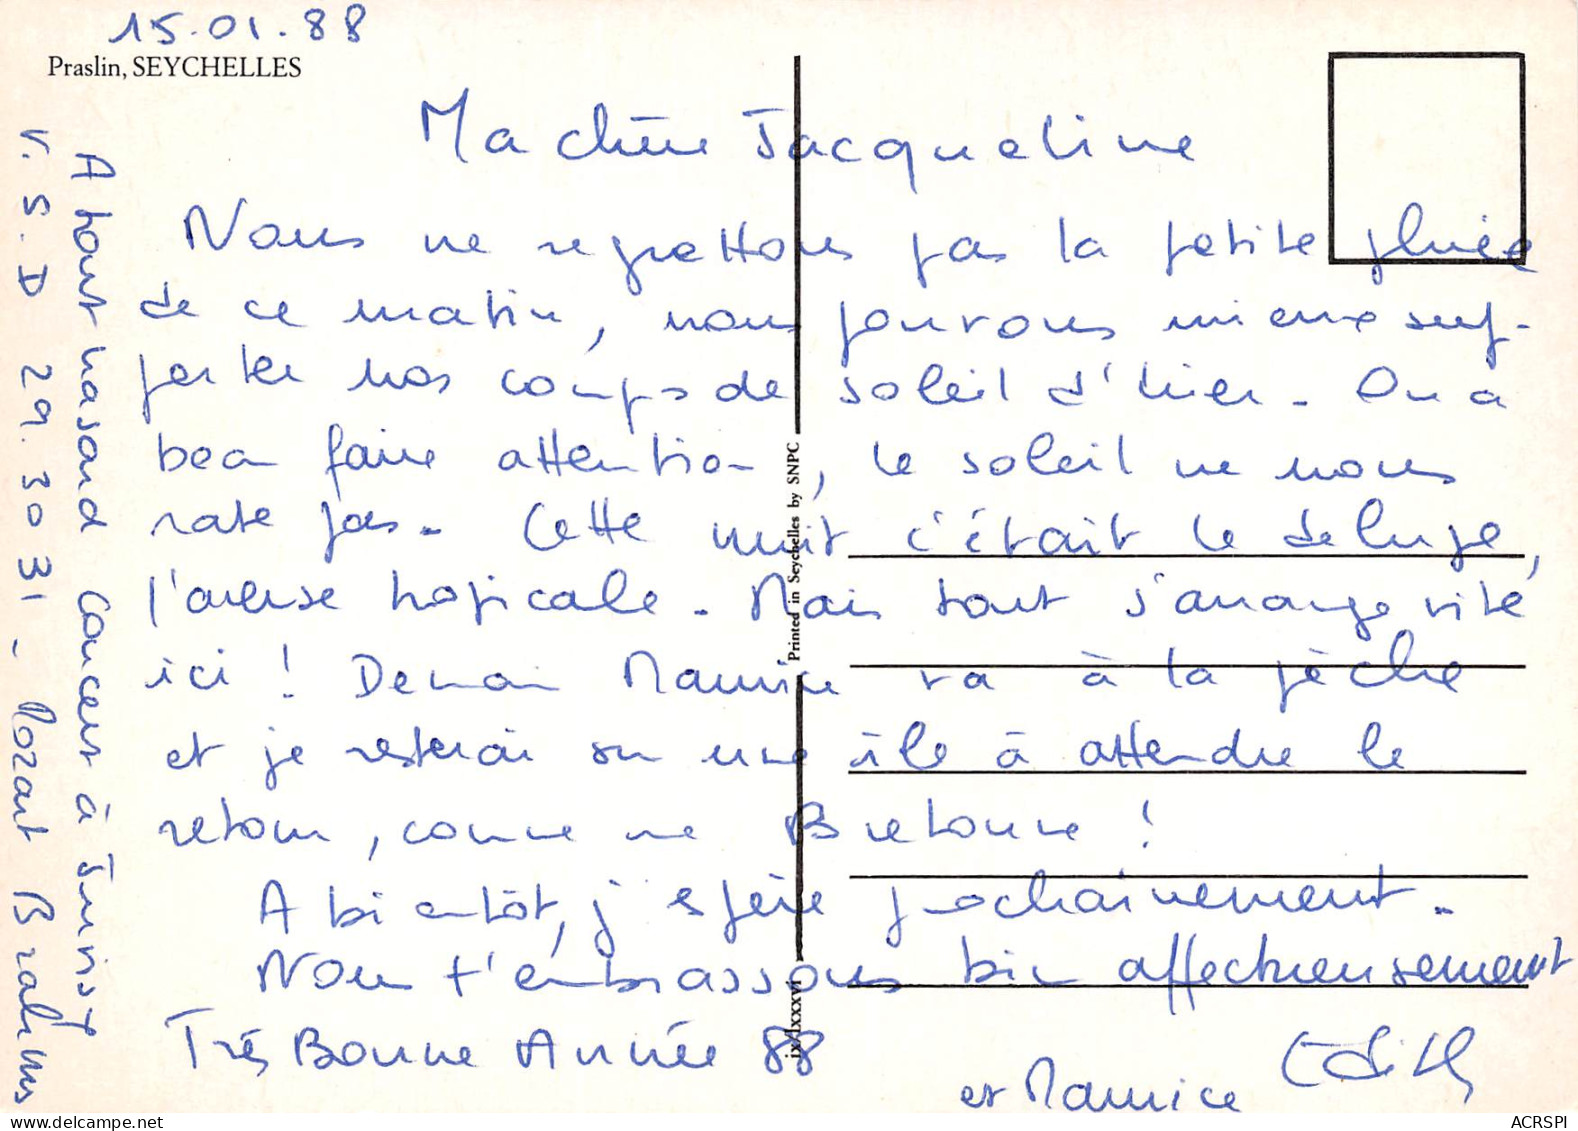 15.01.88
Praslin, SEYCHELLES
Ma chère Jacqueline
Nous ne regrettons pas la petite pluie
de ce matin, nous pouvons mieux sup-
porter nos coups de soleil d'hier. On a
beau faire attention, le soleil ne nous
rate pas. Cette nuit c'était le deluge,
l'averse tropicale. Mais tout s'arrange vite
ici ! Demain Maurice va à la pêche
et je resterai sur une île à attendre le
retour, comme une Bretonne !
A bientôt, j'espère prochainement.
Nous t'embrassons bien affectueusement
Très Bonne Année 88
Edith
et Maurice
A tout hasard Concert à
V.S.D 29.30 31 - Mozart Brahms
Printed in Seychelles by SNPC
ix/lxxxvi
www.delcampe.net
ACRSPI